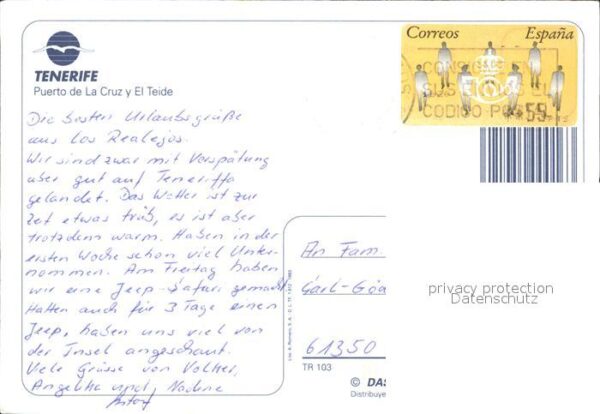 TENERIFE
Puerto de La Cruz y El Teide
Correos España
CONSIGNE EN
SUS ENVIOS EL
CODIGO POSTAL
**59
Die besten Urlaubsgrüße
aus Los Realejos.
Wir sind zwar mit Verspätung
aber gut auf Teneriffa
gelandet. Das Wetter ist zur
Zeit etwas trüb, es ist aber
trotzdem warm. Haben in der
ersten Woche schon viel Unter-
nommen. Am Freitag haben
wir eine Jeep-Safari gemacht
Hatten auch für 3 Tage einen
Jeep, haben uns viel von
der Insel angeschaut.
Viele Grüsse von Volker,
Angelika und Nadine
An Fam.
61350
privacy protection
Datenschutz
TR 103
© DAS
Distribuye